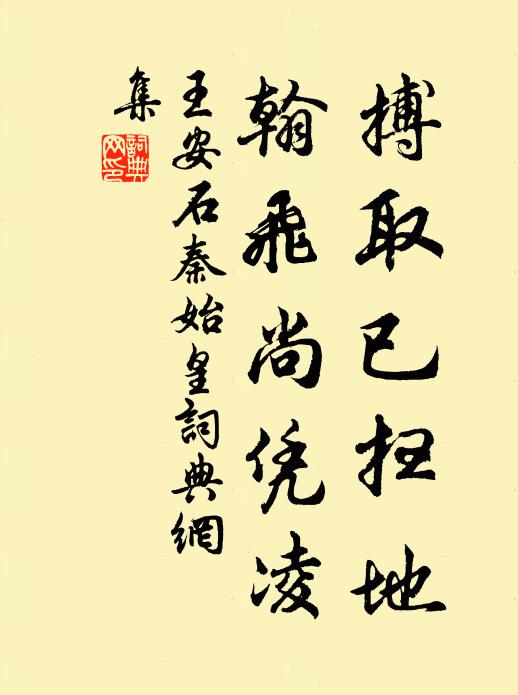 搏取已扫地
翰飛尚凭凌
王安石秦始皇詞典網
集
詞典網印